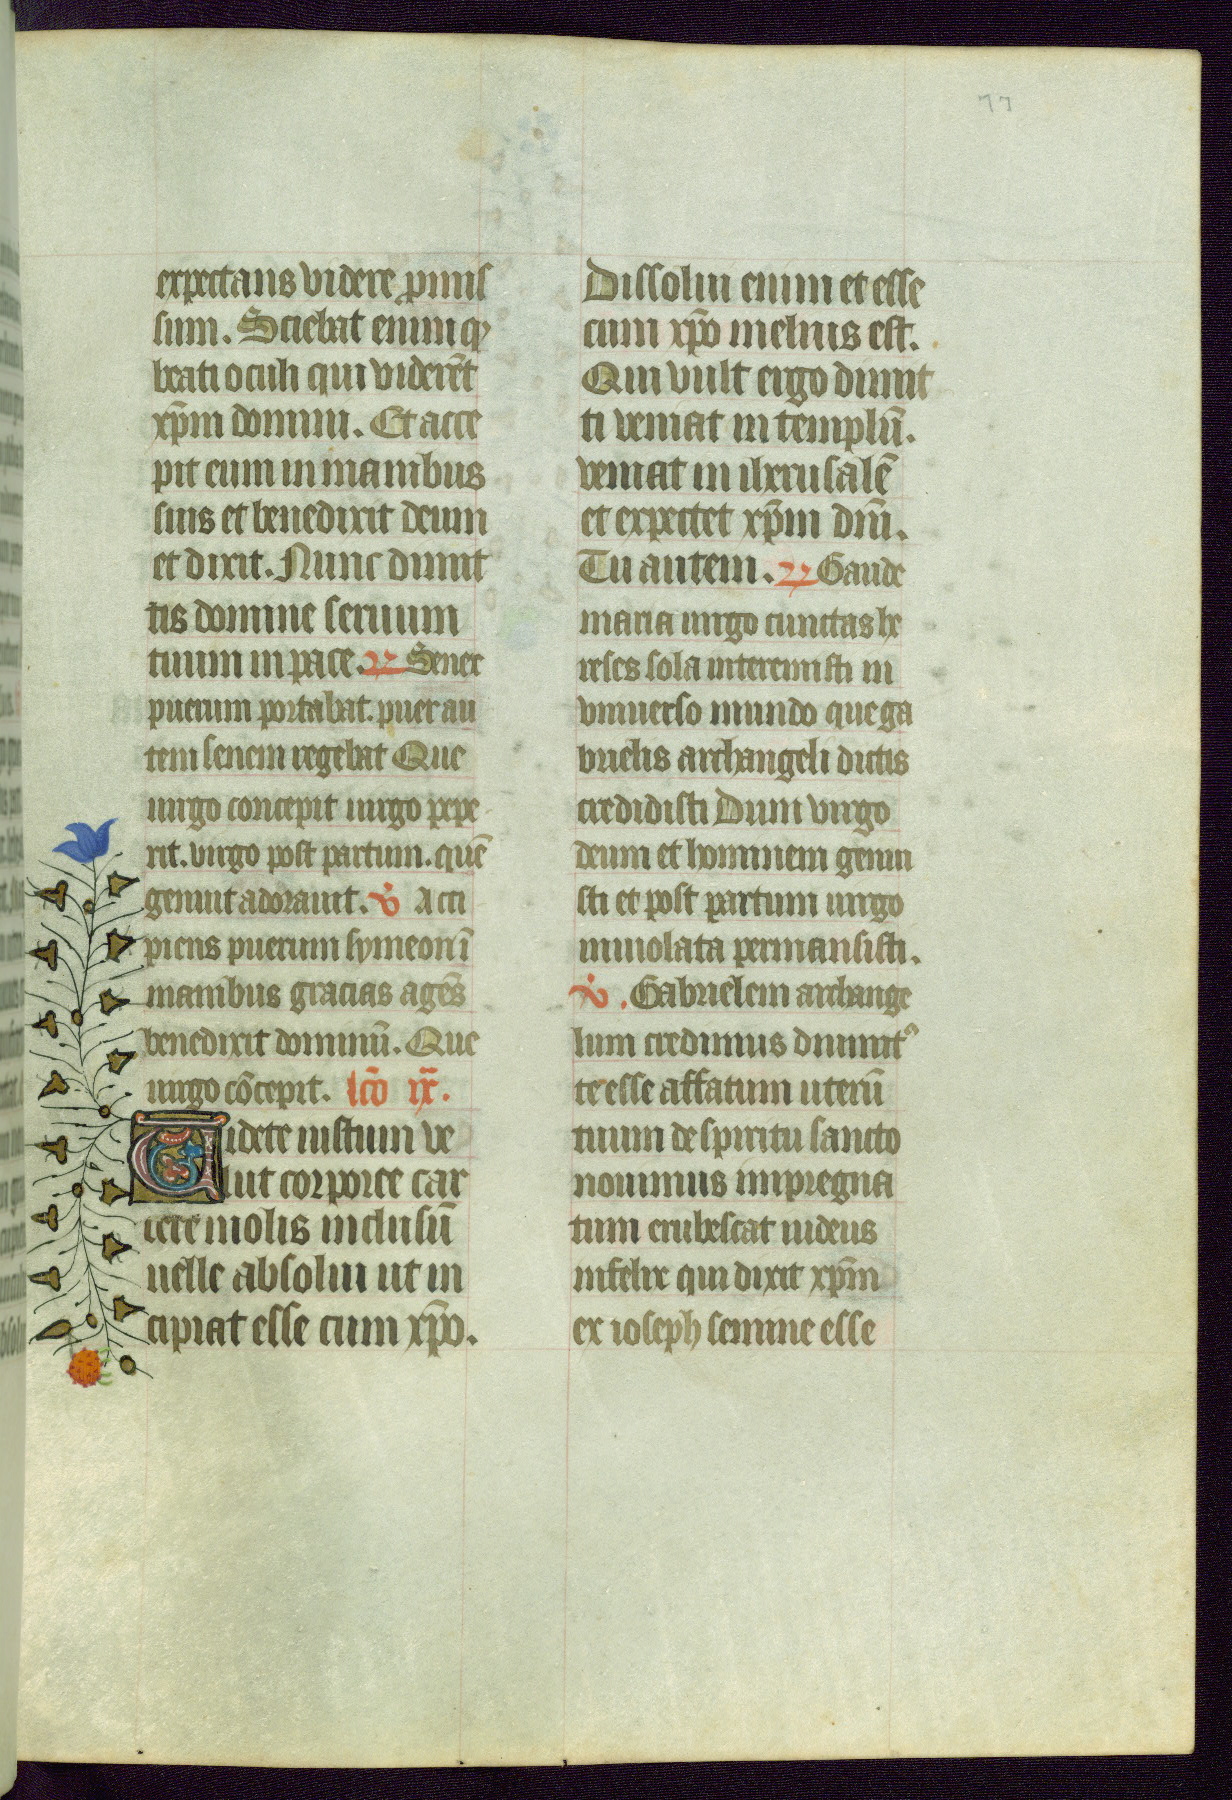 77
expectans videre ꝓmis
sum. Sciebat enim qꝫ
beati oculi qui viderēt
xp̄m domini. Et acce
pit eum in manibus
suis et benedixit deum
et dixit. Nunc dimit
tis domine seruum
tuum in pace. ℟ Senex
puerum portabat. puer au
tem senem regebat Que
uirgo concepit uirgo pepe
rit. virgo post partum. quē
genuit adorauit. ℣ Acci
piens puerum symeon ī
manibus gracias agēs
benedixit dominū. Que
uirgo cōcepit. lcō ix.
Uidete iustum ve
lut corporee car
cere molis inclusū
uelle absolui ut in
cipiat esse cum xp̄o.
Dissolui enim et esse
cum xp̄o melius est.
Qui vult ergo dimit
ti veniat in templū.
veniat in iherusalē
et expectet xp̄m dn̄i.
Tu autem. ℟ Gaude
maria uirgo cunctas he
reses sola interemisti in
vniuerso mundo que ga
brielis archangeli dictis
credidisti Dum virgo
deum et hominem genui
sti et post partum uirgo
inuiolata permansisti.
℣. Gabrielem archange
lum credimus diuinitꝰ
te esse affatum uterū
tuum de spiritu sancto
nouimus impregna
tum erubescat iudeus
infelix qui dixit xp̄m
ex ioseph semine esse